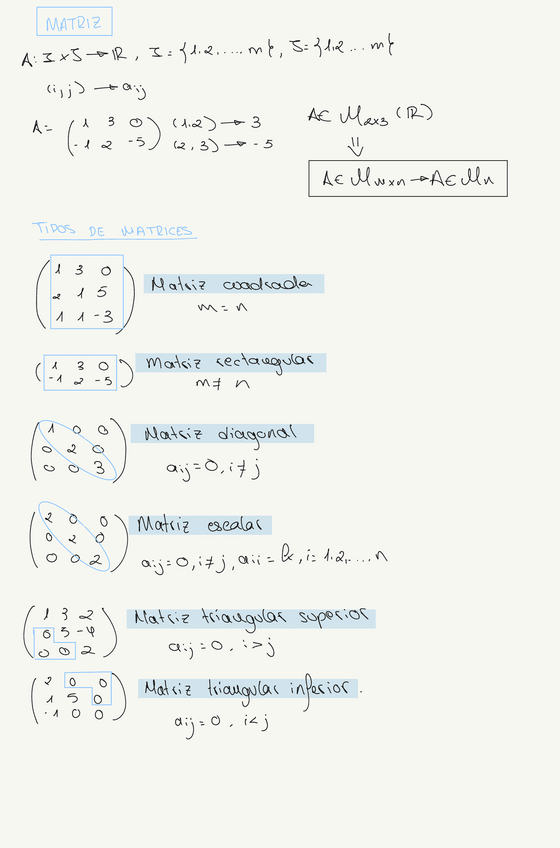 MATRIZ
A: I x J → ℝ, I = {1,2,.... m}, J = {1,2 ... m}
(i,j) → aij
A = ( 1 3 0 (1,2) → 3
-1 2 -5 ) (2,3) → -5
A ∈ M2x3 (ℝ)
⇓
A ∈ Mnxn → A ∈ Mn
TIPOS DE MATRICES
1 3 0
2 1 5
1 1 -3
Matriz cuadrada
m = n
1 3 0
-1 2 -5
Matriz rectangular
m ≠ n
1 0 0
0 2 0
0 0 3
Matriz diagonal
aij = 0, i ≠ j
2 0 0
0 2 0
0 0 2
Matriz escalar
aij = 0, i ≠ j, aii = α, i = 1,2,....n
1 3 2
0 5 -4
0 0 2
Matriz triangular superior
aij = 0, i > j
2 0 0
1 5 0
-1 0 0
Matriz triangular inferior.
aij = 0, i < j